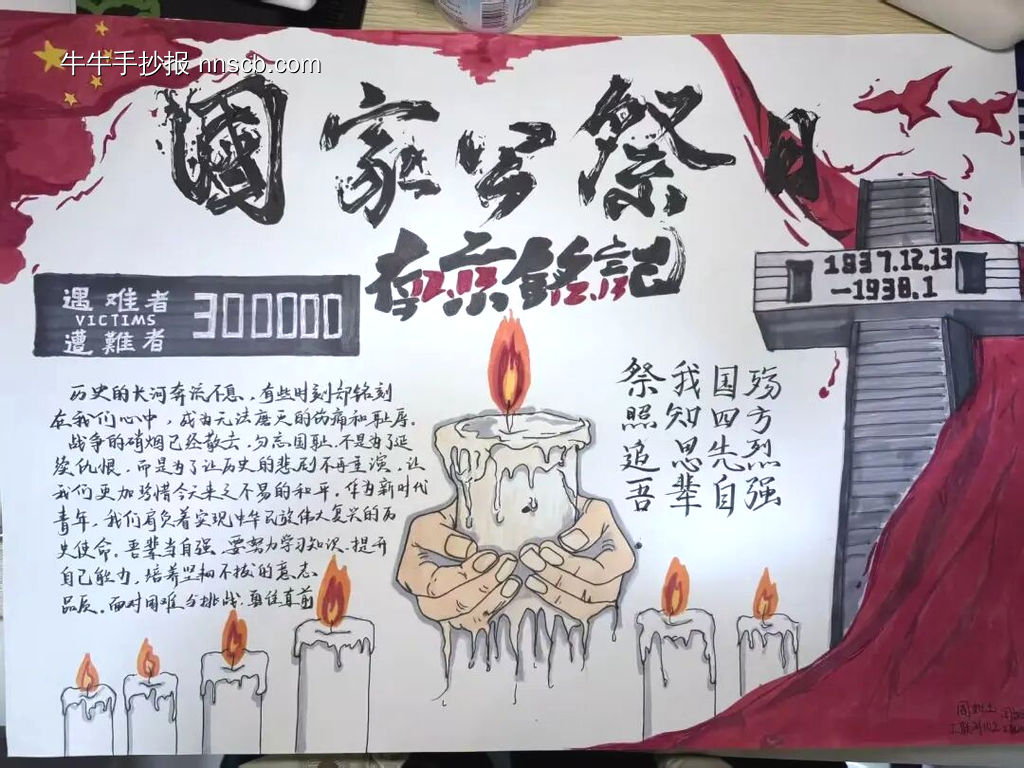 牛牛手抄报 nnscb.com
國家公祭日
南京銘記
12.13 12.13
遇难者 300000
VICTIMS
遭難者
1937.12.13
-1938.1
祭我国殇
照知四方
追思先烈
吾辈自强
历史的长河奔流不息，有些时刻却铭刻
在我们心中，成为无法磨灭的伤痛和耻辱。
战争的硝烟已经散去，勿忘国耻，不是为了延
续仇恨，而是为了让历史的悲剧不再重演，让
我们更加珍惜今天来之不易的和平，作为新时代
青年，我们肩负着实现中华民族伟大复兴的历
史使命，吾辈当自强，要努力学习知识，提升
自己能力，培养坚韧不拔的意志、
品质，面对困难与挑战，勇往直前